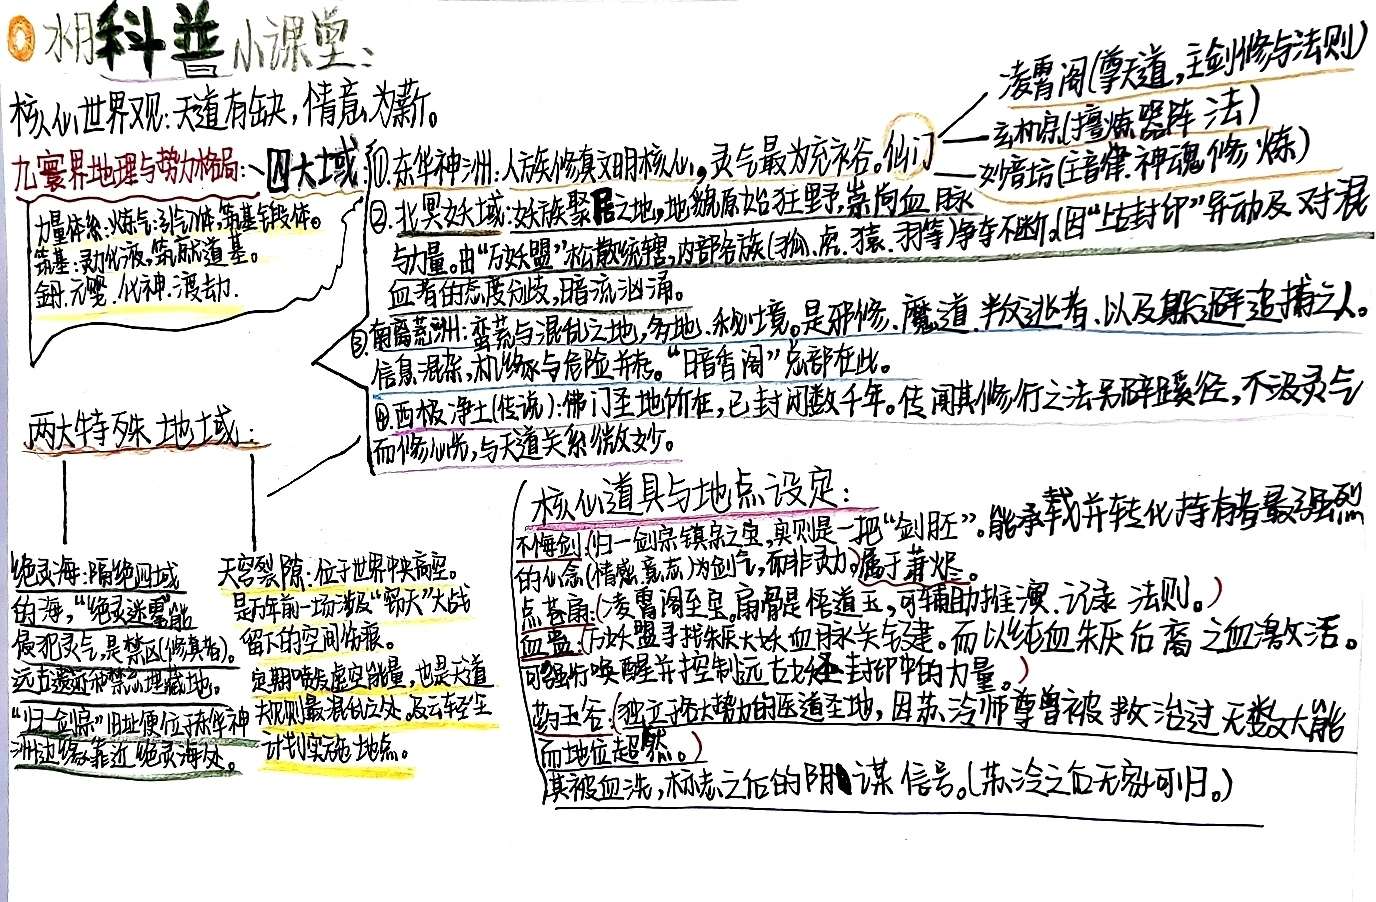 水月科普小课堂:
核心世界观:天道有缺,情意为薪。
九寰界地理与势力格局:
四大域:
力量体系:炼气:引气入体,筑基锻体。
筑基:灵力化液,筑就道基。
金丹.元婴.化神.渡劫.
①.东华神洲:人族修真文明核心,灵气最为充裕。仙门
凌霄阁(尊天道,主剑修与法则)
玄机宗(擅炼器阵法)
妙音坊(主音律.神魂修炼)
②.北冥妖域:妖族聚居之地,地貌原始狂野,崇尚血脉
与力量。由“万妖盟”松散统辖,内部各族(狐、虎、猿、羽等)争夺不断。因“上古封印”异动及对混
血者的态度分歧,暗流汹涌。
③.南离荒洲:蛮荒与混乱之地,多地、秘境。是邪修、魔道、叛逃者、以及躲避追捕之人。
信息混杂,机缘与危险并存。“暗香阁”总部在此。
④.西极净土(传说):佛门圣地所在,已封闭数千年。传闻其修行之法另辟蹊径,不汲灵气
而修心光,与天道关系微妙。
两大特殊地域:
绝灵海:隔绝四域
的海,“绝灵迷雾”能
侵犯灵气,是禁区(修真者)。
远古遗迹和禁忌埋藏地。
“归一剑宗”旧址便位于东华神
洲边缘靠近绝灵海处。
天穹裂隙:位于世界中央高空。
是万年前一场涉及“窃天”大战
留下的空间伤痕。
定期喷发虚空能量,也是天道
规则最混乱之处。及云车轻尘
计划实施地点。
核心道具与地点设定:
不悔剑:(归一剑宗镇宗之宝,实则是一把“剑胚”。能承载并转化持有者最强烈
的心念(情感、意志)为剑气,而非灵力)。属于萧烬。
点苍扇:(凌霄阁至宝。扇骨是悟道玉,可辅助推演、记录法则。)
血蛊:(万妖盟寻找朱厌大妖血脉关键。而以纯血朱厌后裔之血激活。
可强行唤醒并控制远古妖封印中的力量。)
药玉谷:(独立于各大势力的医道圣地,因苏泠师尊曾被救治过无数大能
而地位超然。)
其被血洗,标志之后的阴谋信号。(苏泠之后无家可归。)